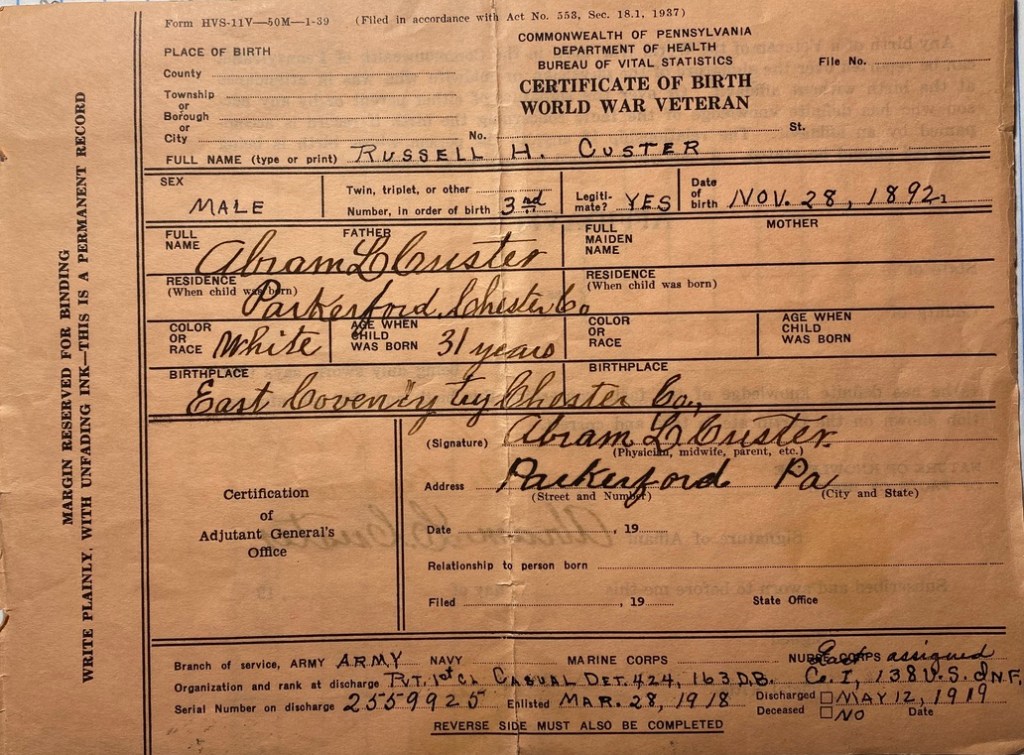 Form HVS-11V—50M—1-39 (Filed in accordance with Act No. 553, Sec. 18.1, 1937)
COMMONWEALTH OF PENNSYLVANIA
DEPARTMENT OF HEALTH
BUREAU OF VITAL STATISTICS
CERTIFICATE OF BIRTH
WORLD WAR VETERAN
File No.
PLACE OF BIRTH
County
Township
or
Borough
or
City No. St.
FULL NAME (type or print) RUSSELL H. CUSTER
SEX MALE
Twin, triplet, or other
Number, in order of birth 3rd
Legiti-
mate? YES
Date
of
birth NOV. 28, 1892
FATHER
FULL
NAME Abram L Custer
MOTHER
FULL
MAIDEN
NAME
RESIDENCE
(When child was born) Parkerford Chester Co
RESIDENCE
(When child was born)
COLOR
OR
RACE White
AGE WHEN
CHILD
WAS BORN 31 years
COLOR
OR
RACE
AGE WHEN
CHILD
WAS BORN
BIRTHPLACE
East Coventry Chester Co.,
BIRTHPLACE
Certification
of
Adjutant General's
Office
(Signature) Abram L Custer.
(Physician, midwife, parent, etc.)
Address Parkerford Pa
(Street and Number) (City and State)
Date , 19
Relationship to person born
Filed , 19 State Office
Branch of service, ARMY ARMY NAVY MARINE CORPS NURSE CORPS Last assigned
Organization and rank at discharge PVT. 1st CL CASUAL DET. 424, 163 D.B. Co. I, 138 U.S. INF.
Serial Number on discharge 2559925 Enlisted MAR. 28, 1918 Discharged MAY 12, 1919
Deceased NO Date
REVERSE SIDE MUST ALSO BE COMPLETED
MARGIN RESERVED FOR BINDING
WRITE PLAINLY, WITH UNFADING INK—THIS IS A PERMANENT RECORD